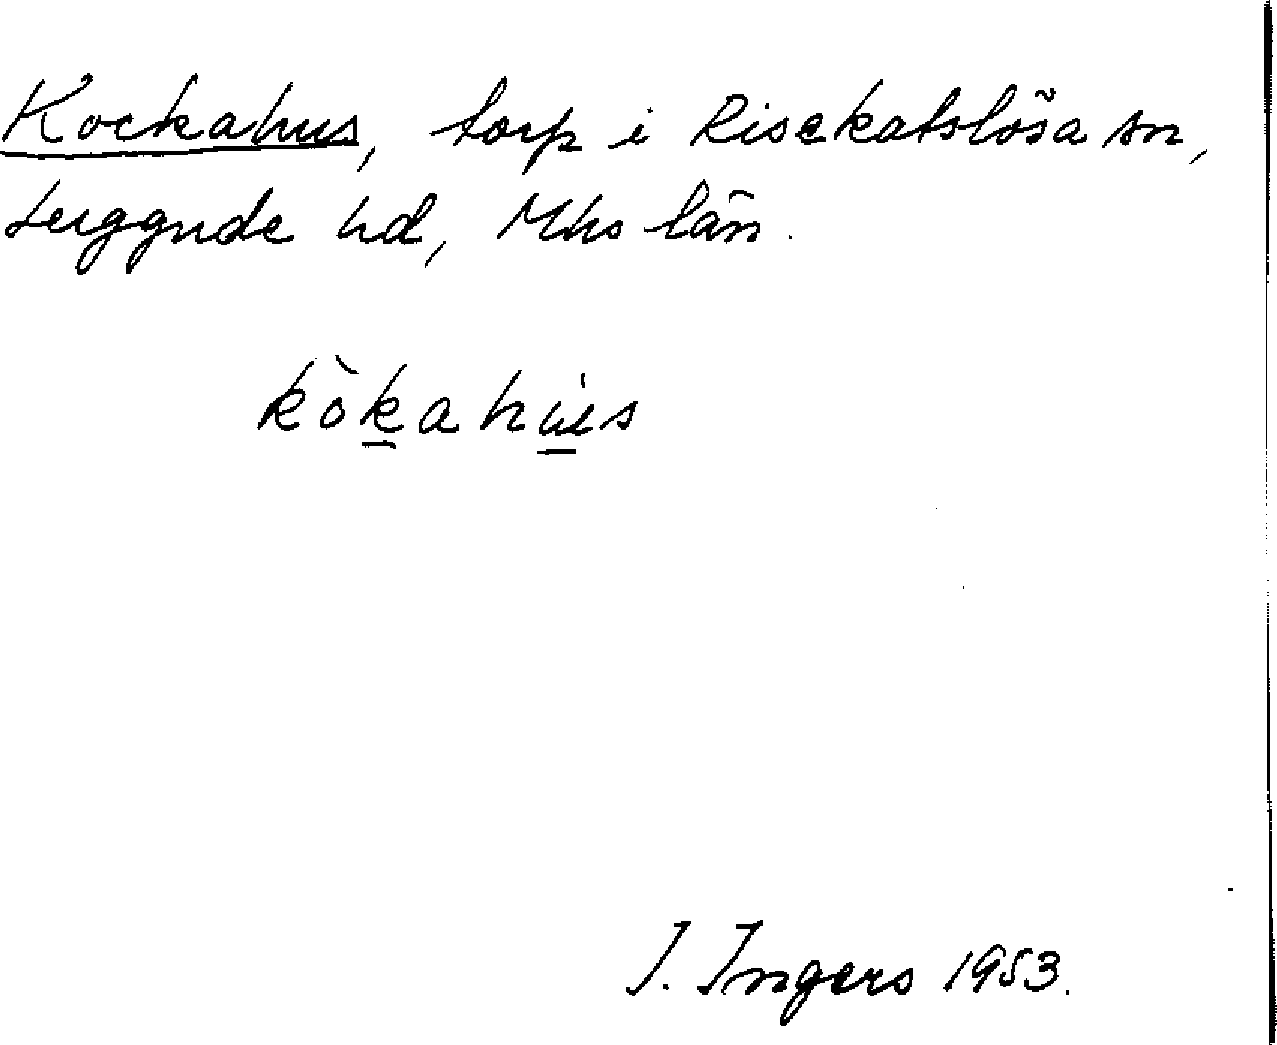 Kockahus, torp i Risekatslösa sn,
Luggude hd, Mhs län.
kòkahús
I. Ingers 1953.